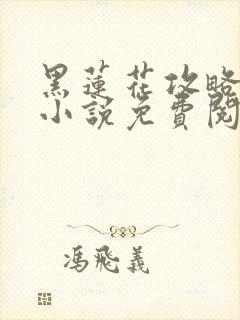 黑蓮花攻略
小說免費閱
馮飛義